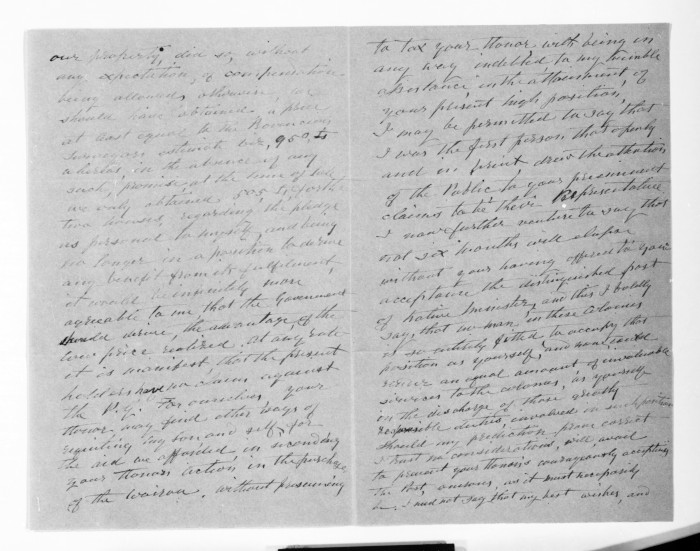 our property, did so, without
any expectation, of compensation
being allowed, otherwise, we
should have obtained a price
at least equal to the Provincial
Surveyors estimate viz, 950,
whereas, in the absence of any
such, promise, at the time of sale
we only obtained 505 for the
two houses, regarding, the pledge
as personal to myself, and being
no longer in a position to derive
any benefit from its fulfilment,
it would be infinitely more
agreeable to me that the Government
should derive, the advantage, of the
low price realized. At any rate
it is manifest, that the present
holders have no claim against
the P.G. For ourselves, your
Honor, may find other ways of
requiting my son and self, for
the aid we afforded, in seconding
your Honors action, in the purchase,
of the Wairau. Without presuming
to tax your Honor with being in
any way indebted to my humble
assistance, in the attainment of
your present high position,
I may be permitted to say that
I was the first person that openly
and in print, drew the attention
of the Public to your preeminent
claims to be their Representative
I now further venture to say that
not six months will elapse
without your having offered to your
acceptance the distinguished post
of Native Minister, and this I boldly
say, that no man, in these Colonies
is so entirely fitted to occupy that
position as yourself, and none could
render an equal amount of invaluable
services to the colonies, as yourself
in the discharge of those greatly
responsible duties, involved in such position
should my prediction prove correct
I trust no considerations, will avail
to prevent your Honor's courageously accepting
the post, onerous, as it must necessarily
be, I need not say that my best wishes, and